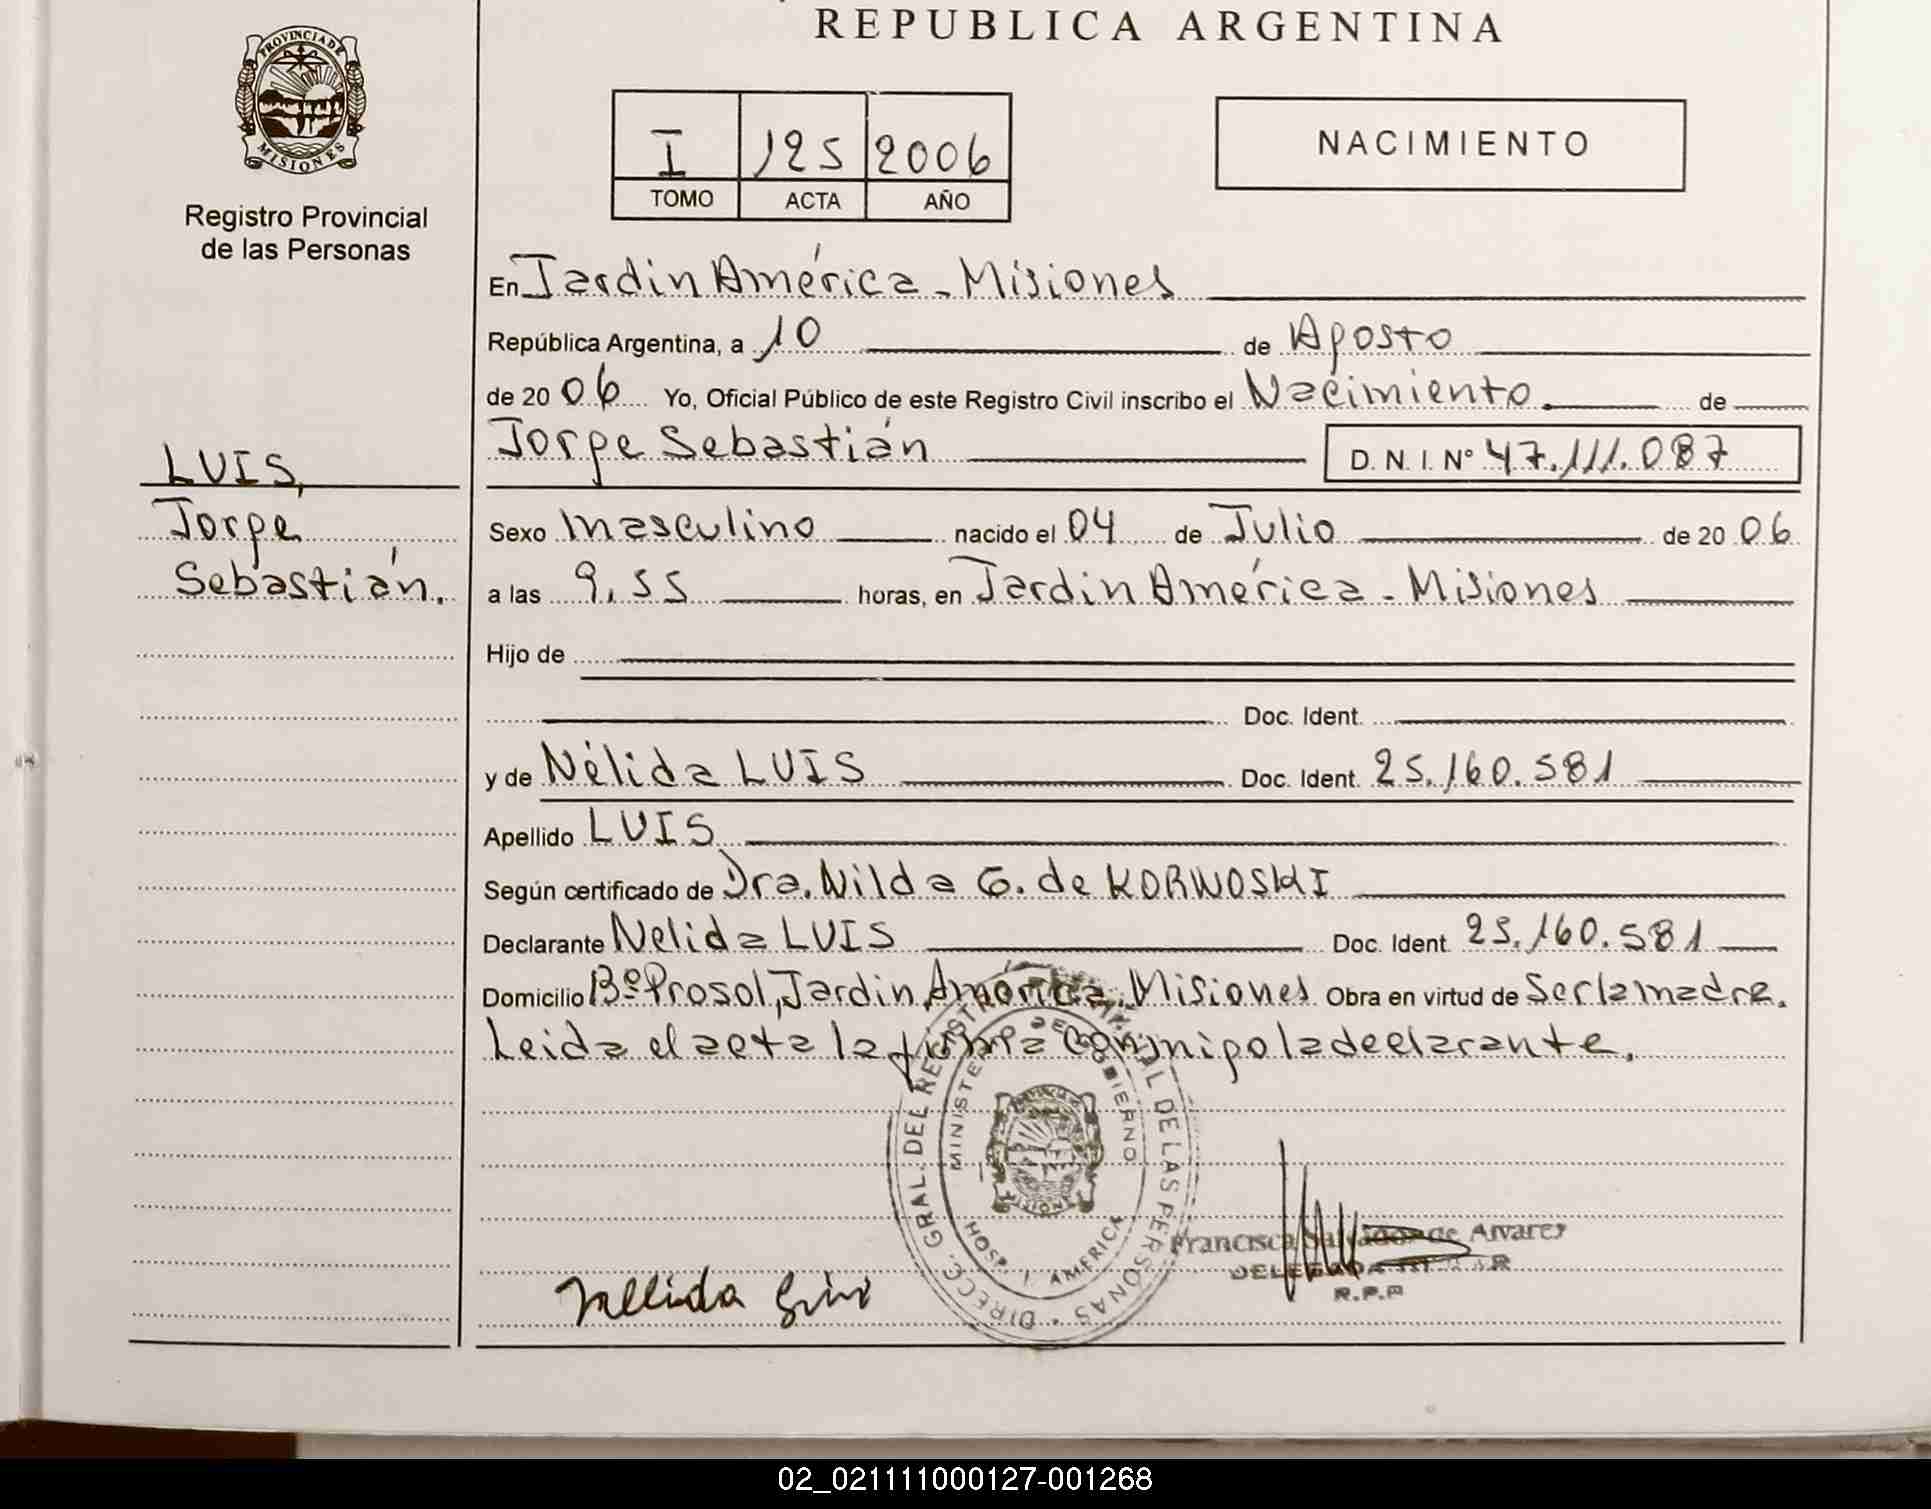 REPUBLICA ARGENTINA
PROVINCIA DE
MISIONES
Registro Provincial
de las Personas
I 125 2006
TOMO ACTA AÑO
NACIMIENTO
En Jardin América - Misiones
República Argentina, a 10 de Agosto
de 20 06 Yo, Oficial Público de este Registro Civil inscribo el Nacimiento de
Jorge Sebastián D. N. I. N° 47.111.087
LUIS,
Jorge
Sebastián.
Sexo masculino nacido el 04 de Julio de 20 06
a las 9,55 horas, en Jardin América - Misiones
Hijo de
Doc. Ident.
y de Nélida LUIS Doc. Ident. 25.160.581
Apellido LUIS
Según certificado de Dra. Nilda G. de KORWOSKI
Declarante Nelida LUIS Doc. Ident. 25.160.581
Domicilio Bº Prosol, Jardin América, Misiones Obra en virtud de Ser la madre.
Leida el acta la firma conmigo la declarante.
DIRECC. GRAL. DEL REGISTRO DE LAS PERSONAS
MINISTERIO DE GOBIERNO
HOSP. J. AMERICA
Francisca Salvador de Alvarez
DELEGADA
R.P.P
02_021111000127-001268